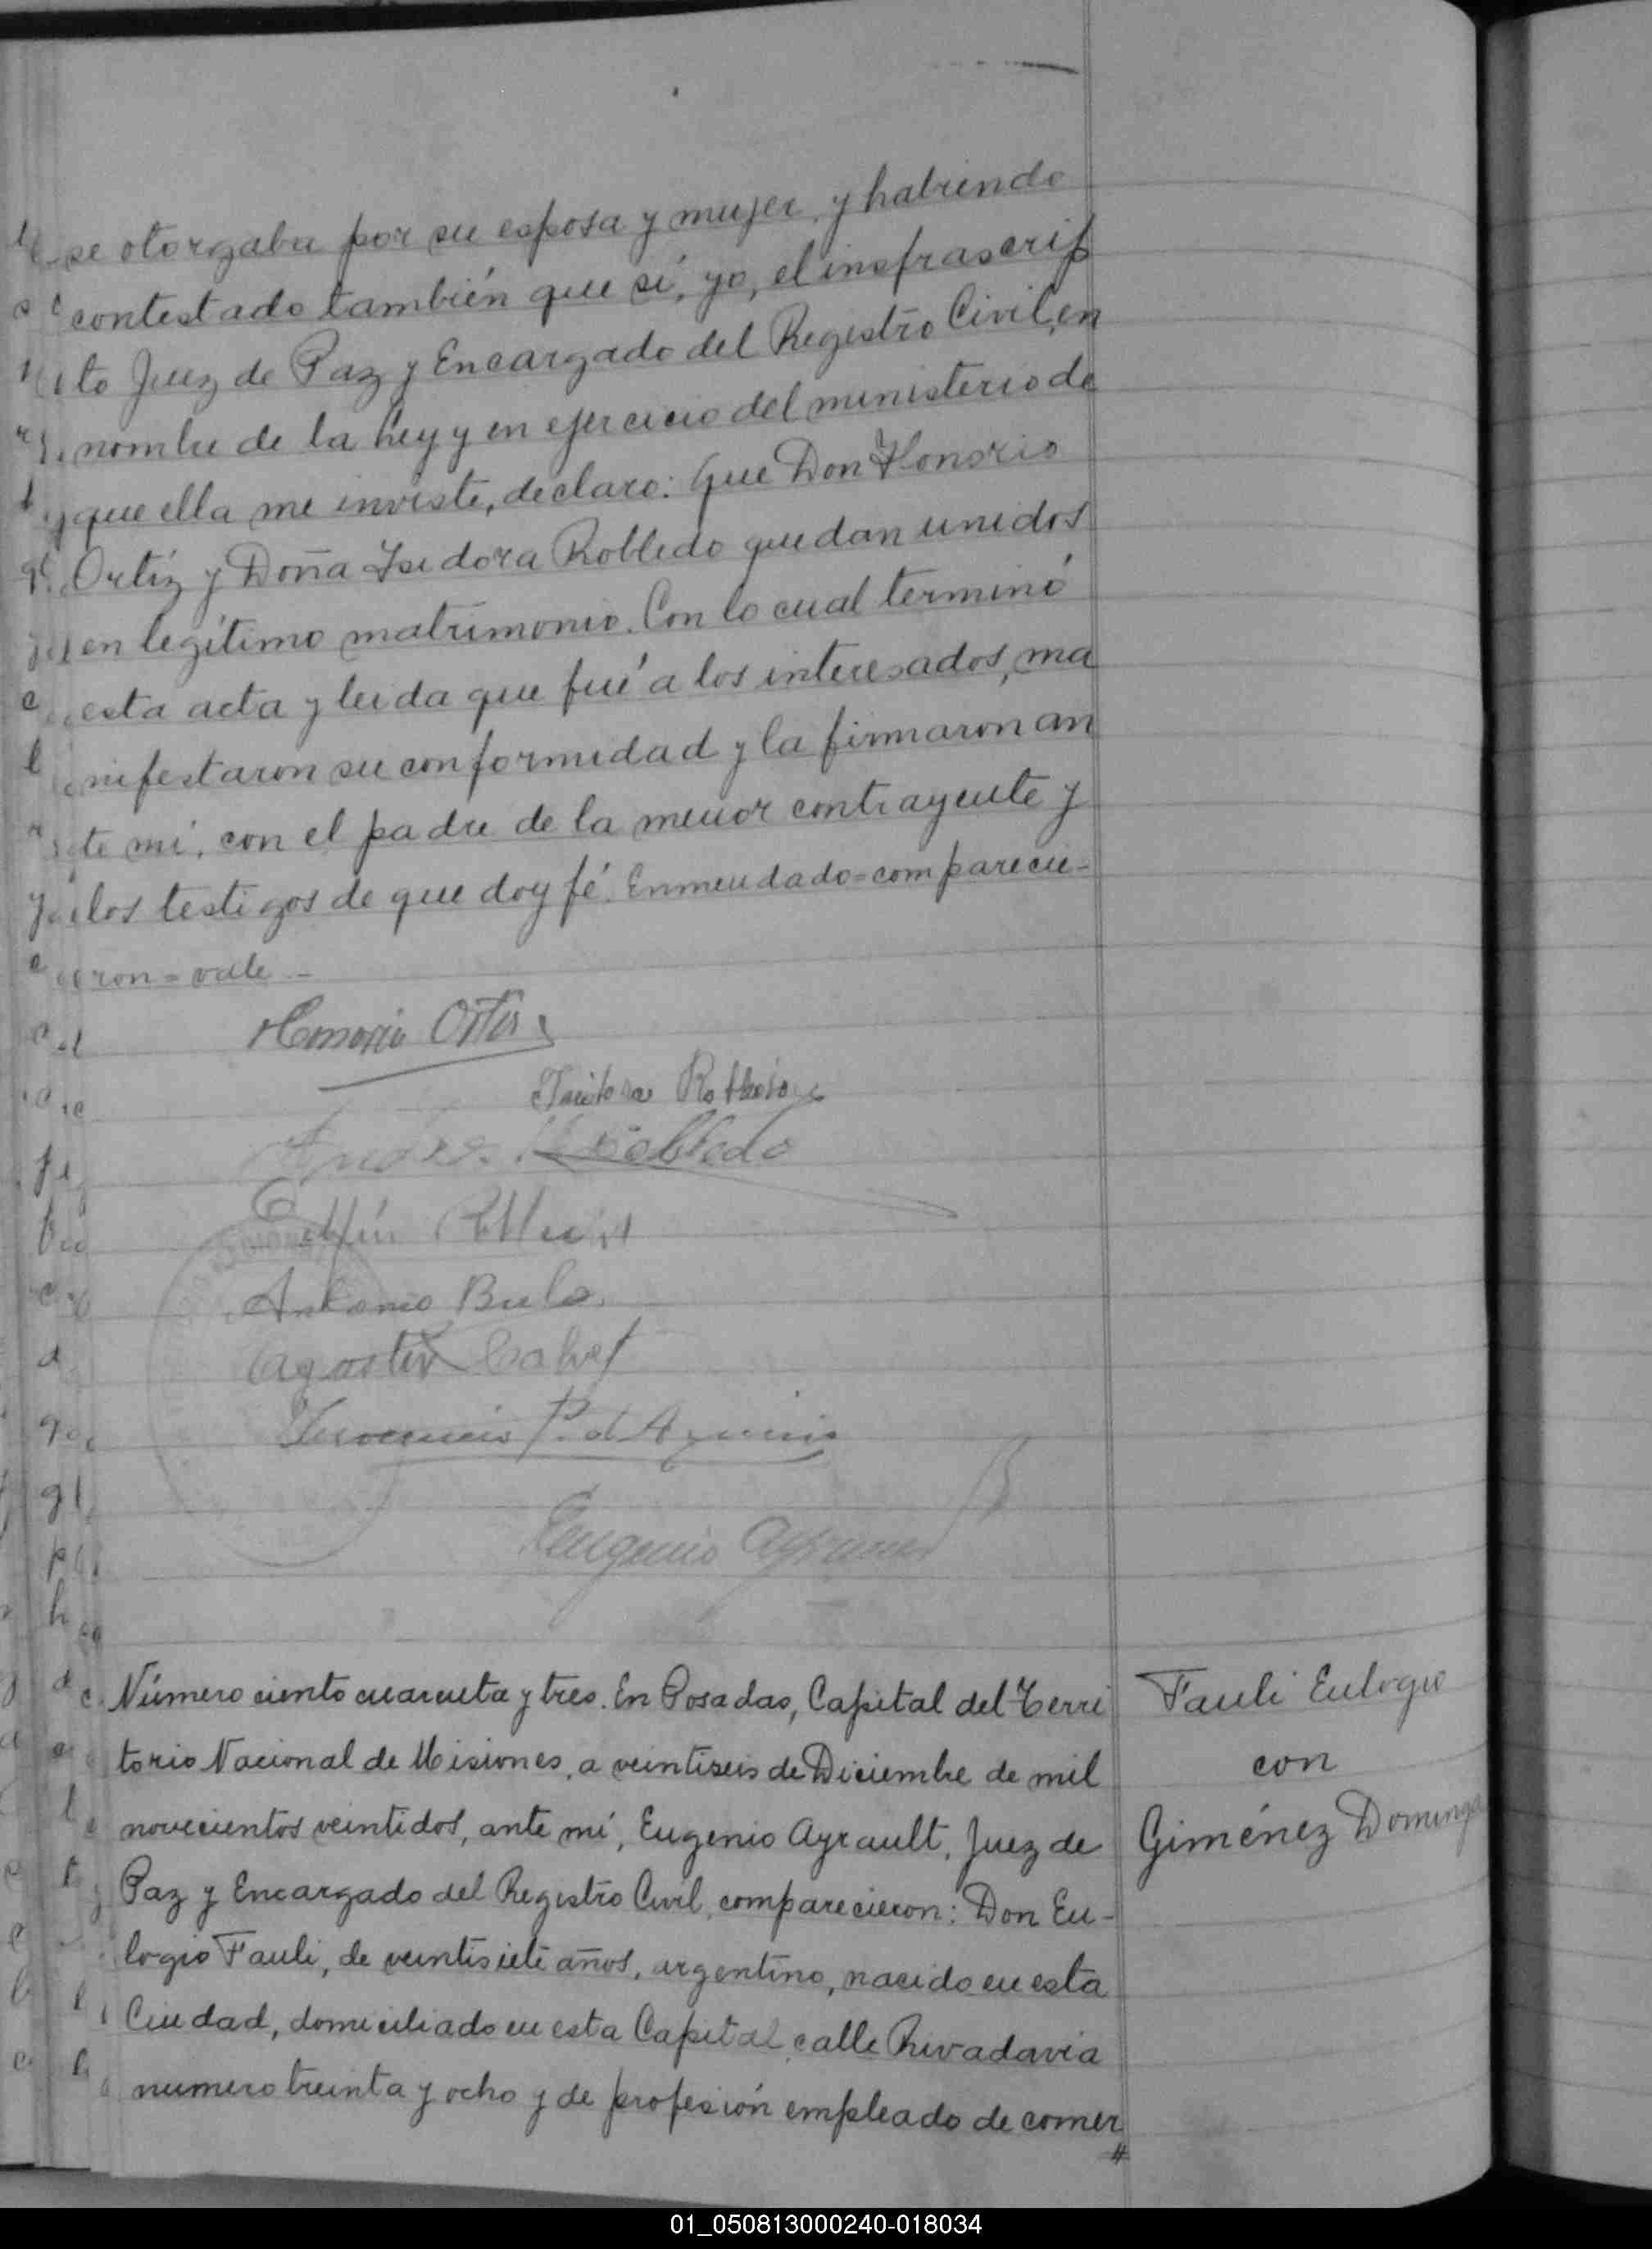 se otorgaba por su esposa y mujer, y habiendo
contestado también que sí, yo, el insfrascrip
to Juez de Paz y Encargado del Registro Civil, en
nombre de la Ley y en ejercicio del ministerio de
que ella me inviste, declaro: Que Don Honorio
Ortíz y Doña Isidora Robledo quedan unidos
en legítimo matrimonio. Con lo cual terminó
esta acta y leida que fué a los interesados, ma
nifestaron su conformidad y la firmaron an
te mí, con el padre de la menor contrayente y
los testigos de que doy fé. Enmendado=comparecie-
ron=vale -
Honorio Ortiz
Isidora Robledo
Robledo
Antonio Bulo
Agostin Calvet
Eugenio Ayrault
Número ciento cuarenta y tres. En Posadas, Capital del Terri
torio Nacional de Misiones, a veintiseis de Diciembre de mil
novecientos veintidos, ante mí, Eugenio Ayrault, Juez de
Paz y Encargado del Registro Civil, comparecieron: Don Eu-
logio Fauli, de veintisiete años, argentino, nacido en esta
Ciudad, domiciliado en esta Capital, calle Rivadavia
numero treinta y ocho y de profesión empleado de comer
#
Fauli Eulogio
con
Giménez Dominga
01_050813000240-018034